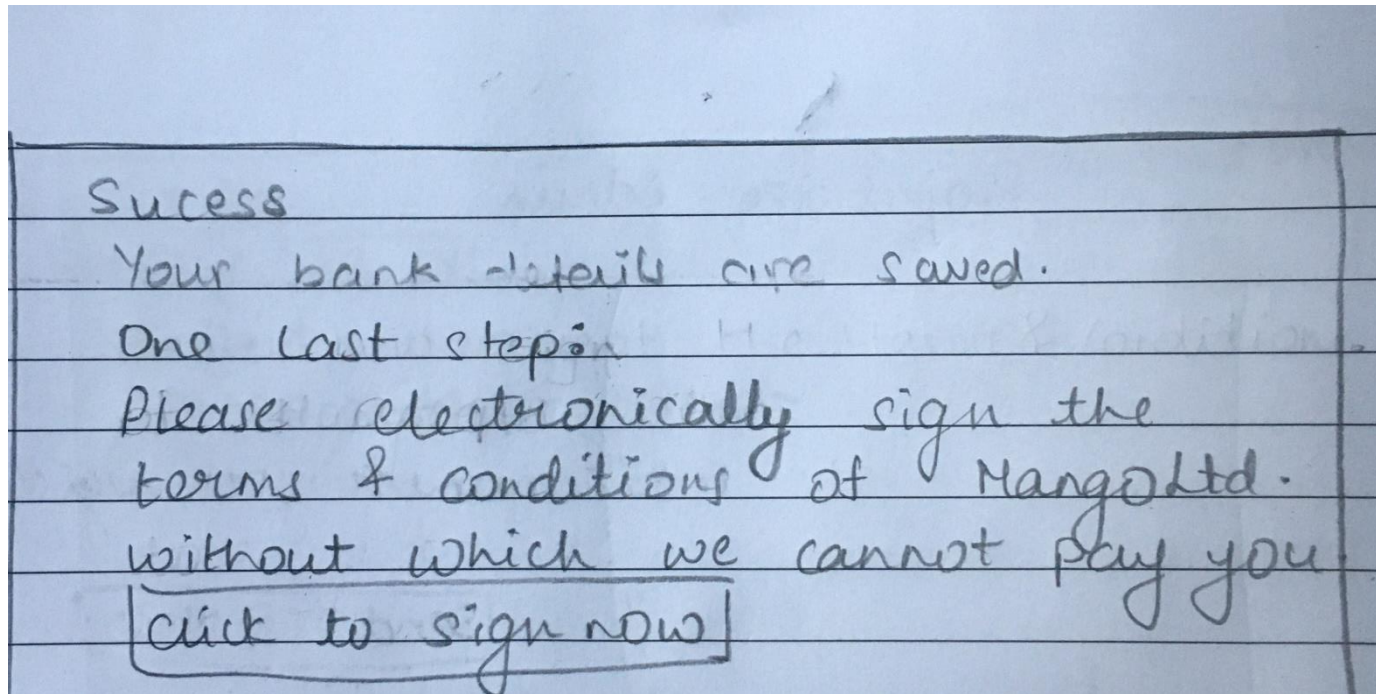 Sucess
Your bank details are saved.
One last step:
Please electronically sign the
terms & conditions of MangoLtd.
without which we cannot pay you
click to sign now